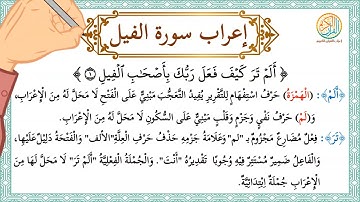 إعراب سورة الفيل
﴿ أَلَمْ تَرَ كَيْفَ فَعَلَ رَبُّكَ بِأَصْحَابِ الْفِيلِ ﴾
﴿أَلَمْ﴾ : (الْهَمْزَةُ) حَرْفُ اسْتِفْهَامٍ لِلتَّقْرِيرِ يُفِيدُ التَّعَجُّبَ مَبْنِيٌّ عَلَى الْفَتْحِ لَا مَحَلَّ لَهُ مِنَ الْإِعْرَابِ،
وَ(لَمْ) حَرْفُ نَفْيٍ وَجَزْمٍ وَقَلْبٍ مَبْنِيٌّ عَلَى السُّكُونِ لَا مَحَلَّ لَهُ مِنَ الْإِعْرَابِ.
﴿تَرَ﴾ : فِعْلٌ مُضَارِعٌ مَجْزُومٌ بِـ "لم" وَعَلَامَةُ جَزْمِهِ حَذْفُ حَرْفِ الْعِلَّةِ "الألف" وَالْفَتْحَةُ دَلِيلٌ عَلَيْهَا،
وَالْفَاعِلُ ضَمِيرٌ مُسْتَتِرٌ فِيهِ وُجُوبًا تَقْدِيرُهُ "أَنْتَ". وَالْجُمْلَةُ الْفِعْلِيَّةُ "أَلَمْ تَرَ" لَا مَحَلَّ لَهَا مِنَ
الْإِعْرَابِ جُمْلَةٌ اِبْتِدَائِيَّةٌ.